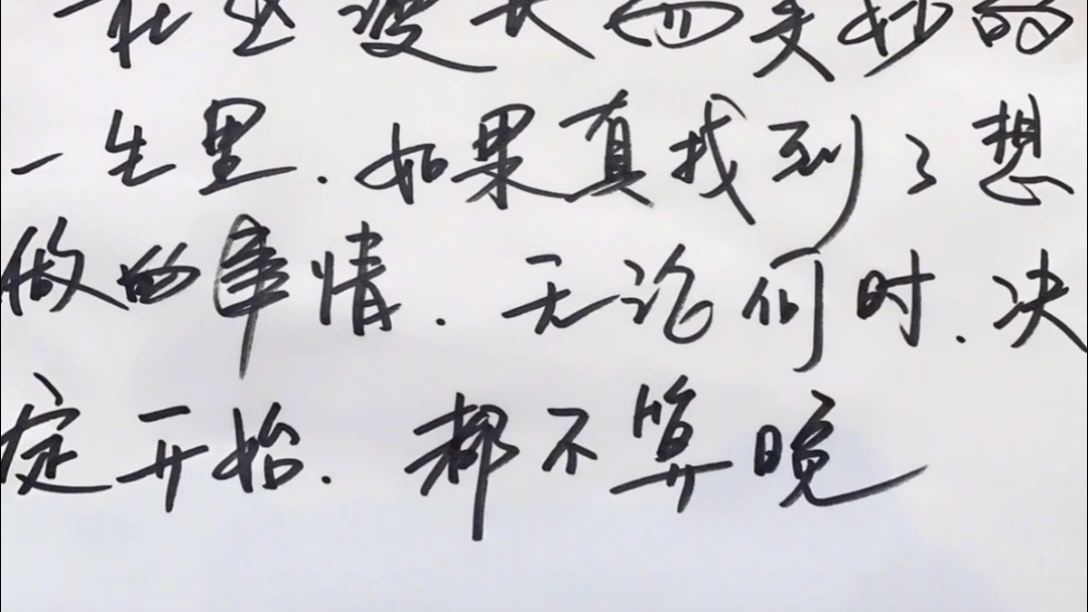 在这漫长而美妙的
一生里.如果真找到了想
做的事情.无论何时.决
定开始.都不算晚